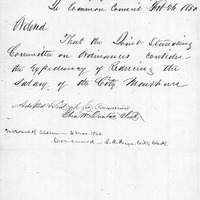 In Common Council, Feb 26 1850
Ordered
That the Joint Standing
Committee on Ordinances consider
the Expediency of Reducing the
Salary of the City Marshal
Adopted & Sent up for Concurrence
Clerk
in Board of Aldermen 4 Mar. 1850
Concurred City Clerk